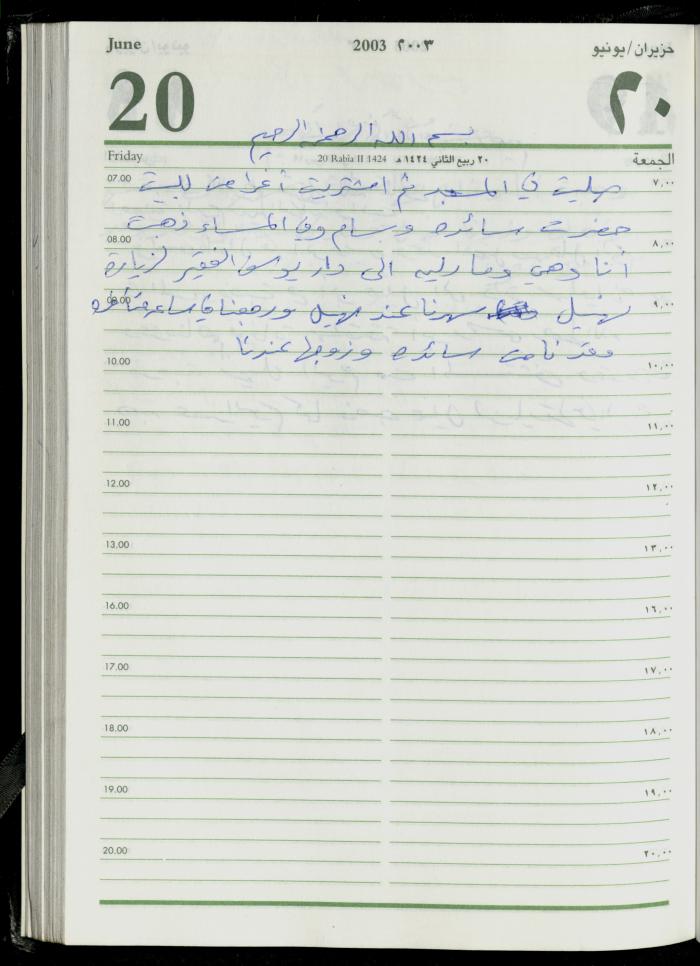 June 2003 ٢٠٠٣ حزيران/يونيو
20 ٢٠
بسم الله الرحمن الرحيم
Friday 20 Rabia II 1424 ٢٠ ربيع الثاني ١٤٢٤ هـ الجمعة
07.00 صليت في المسجد ثم اشتريت أغراض للبيت ٧,٠٠
حضرت سائده وبسام وفي المساء ذهبت
08.00 ٨,٠٠
أنا وهي الى دار يوسف الفقير لزيارة
09.00 نهيل سهرنا عند نهيل ورجعنا ساعه متأخره ٩,٠٠
سائده وزوجها عندنا
10.00 ١٠,٠٠
11.00 ١١,٠٠
12.00 ١٢,٠٠
13.00 ١٣,٠٠
16.00 ١٦,٠٠
17.00 ١٧,٠٠
18.00 ١٨,٠٠
19.00 ١٩,٠٠
20.00 ٢٠,٠٠